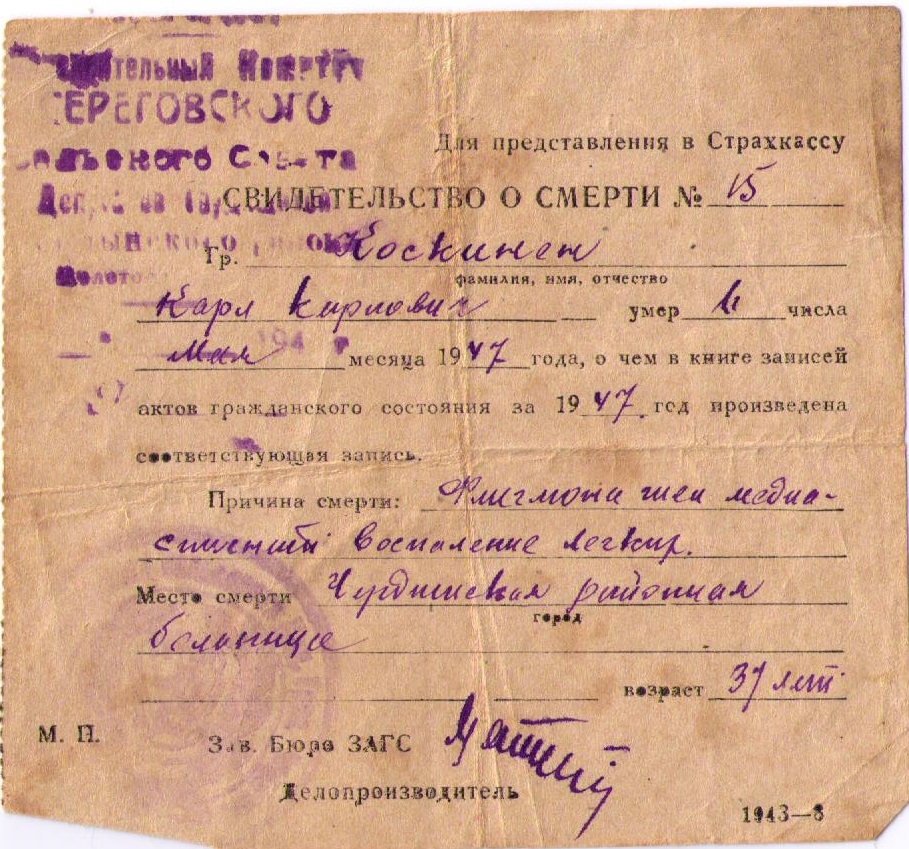 ительный Комитет
ЕРЕГОВСКОГО
льского Совета
Для представления в Страхкассу
СВИДЕТЕЛЬСТВО О СМЕРТИ № 15
Гр. Коскинен
фамилия, имя, отчество
Карл Карлович умер числа
мая месяца 1947 года, о чем в книге записей
актов гражданского состояния за 1947 год произведена
соответствующая запись.
Причина смерти: Флегмона шеи медиа-
стенит воспаление легких.
Место смерти районная
город
больница
возраст 37 лет
М. П.
Зав. Бюро ЗАГС
Делопроизводитель
1943—8